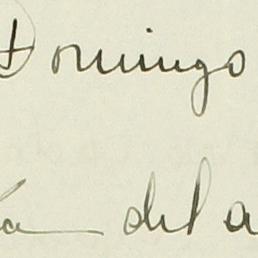 Domingo
del a